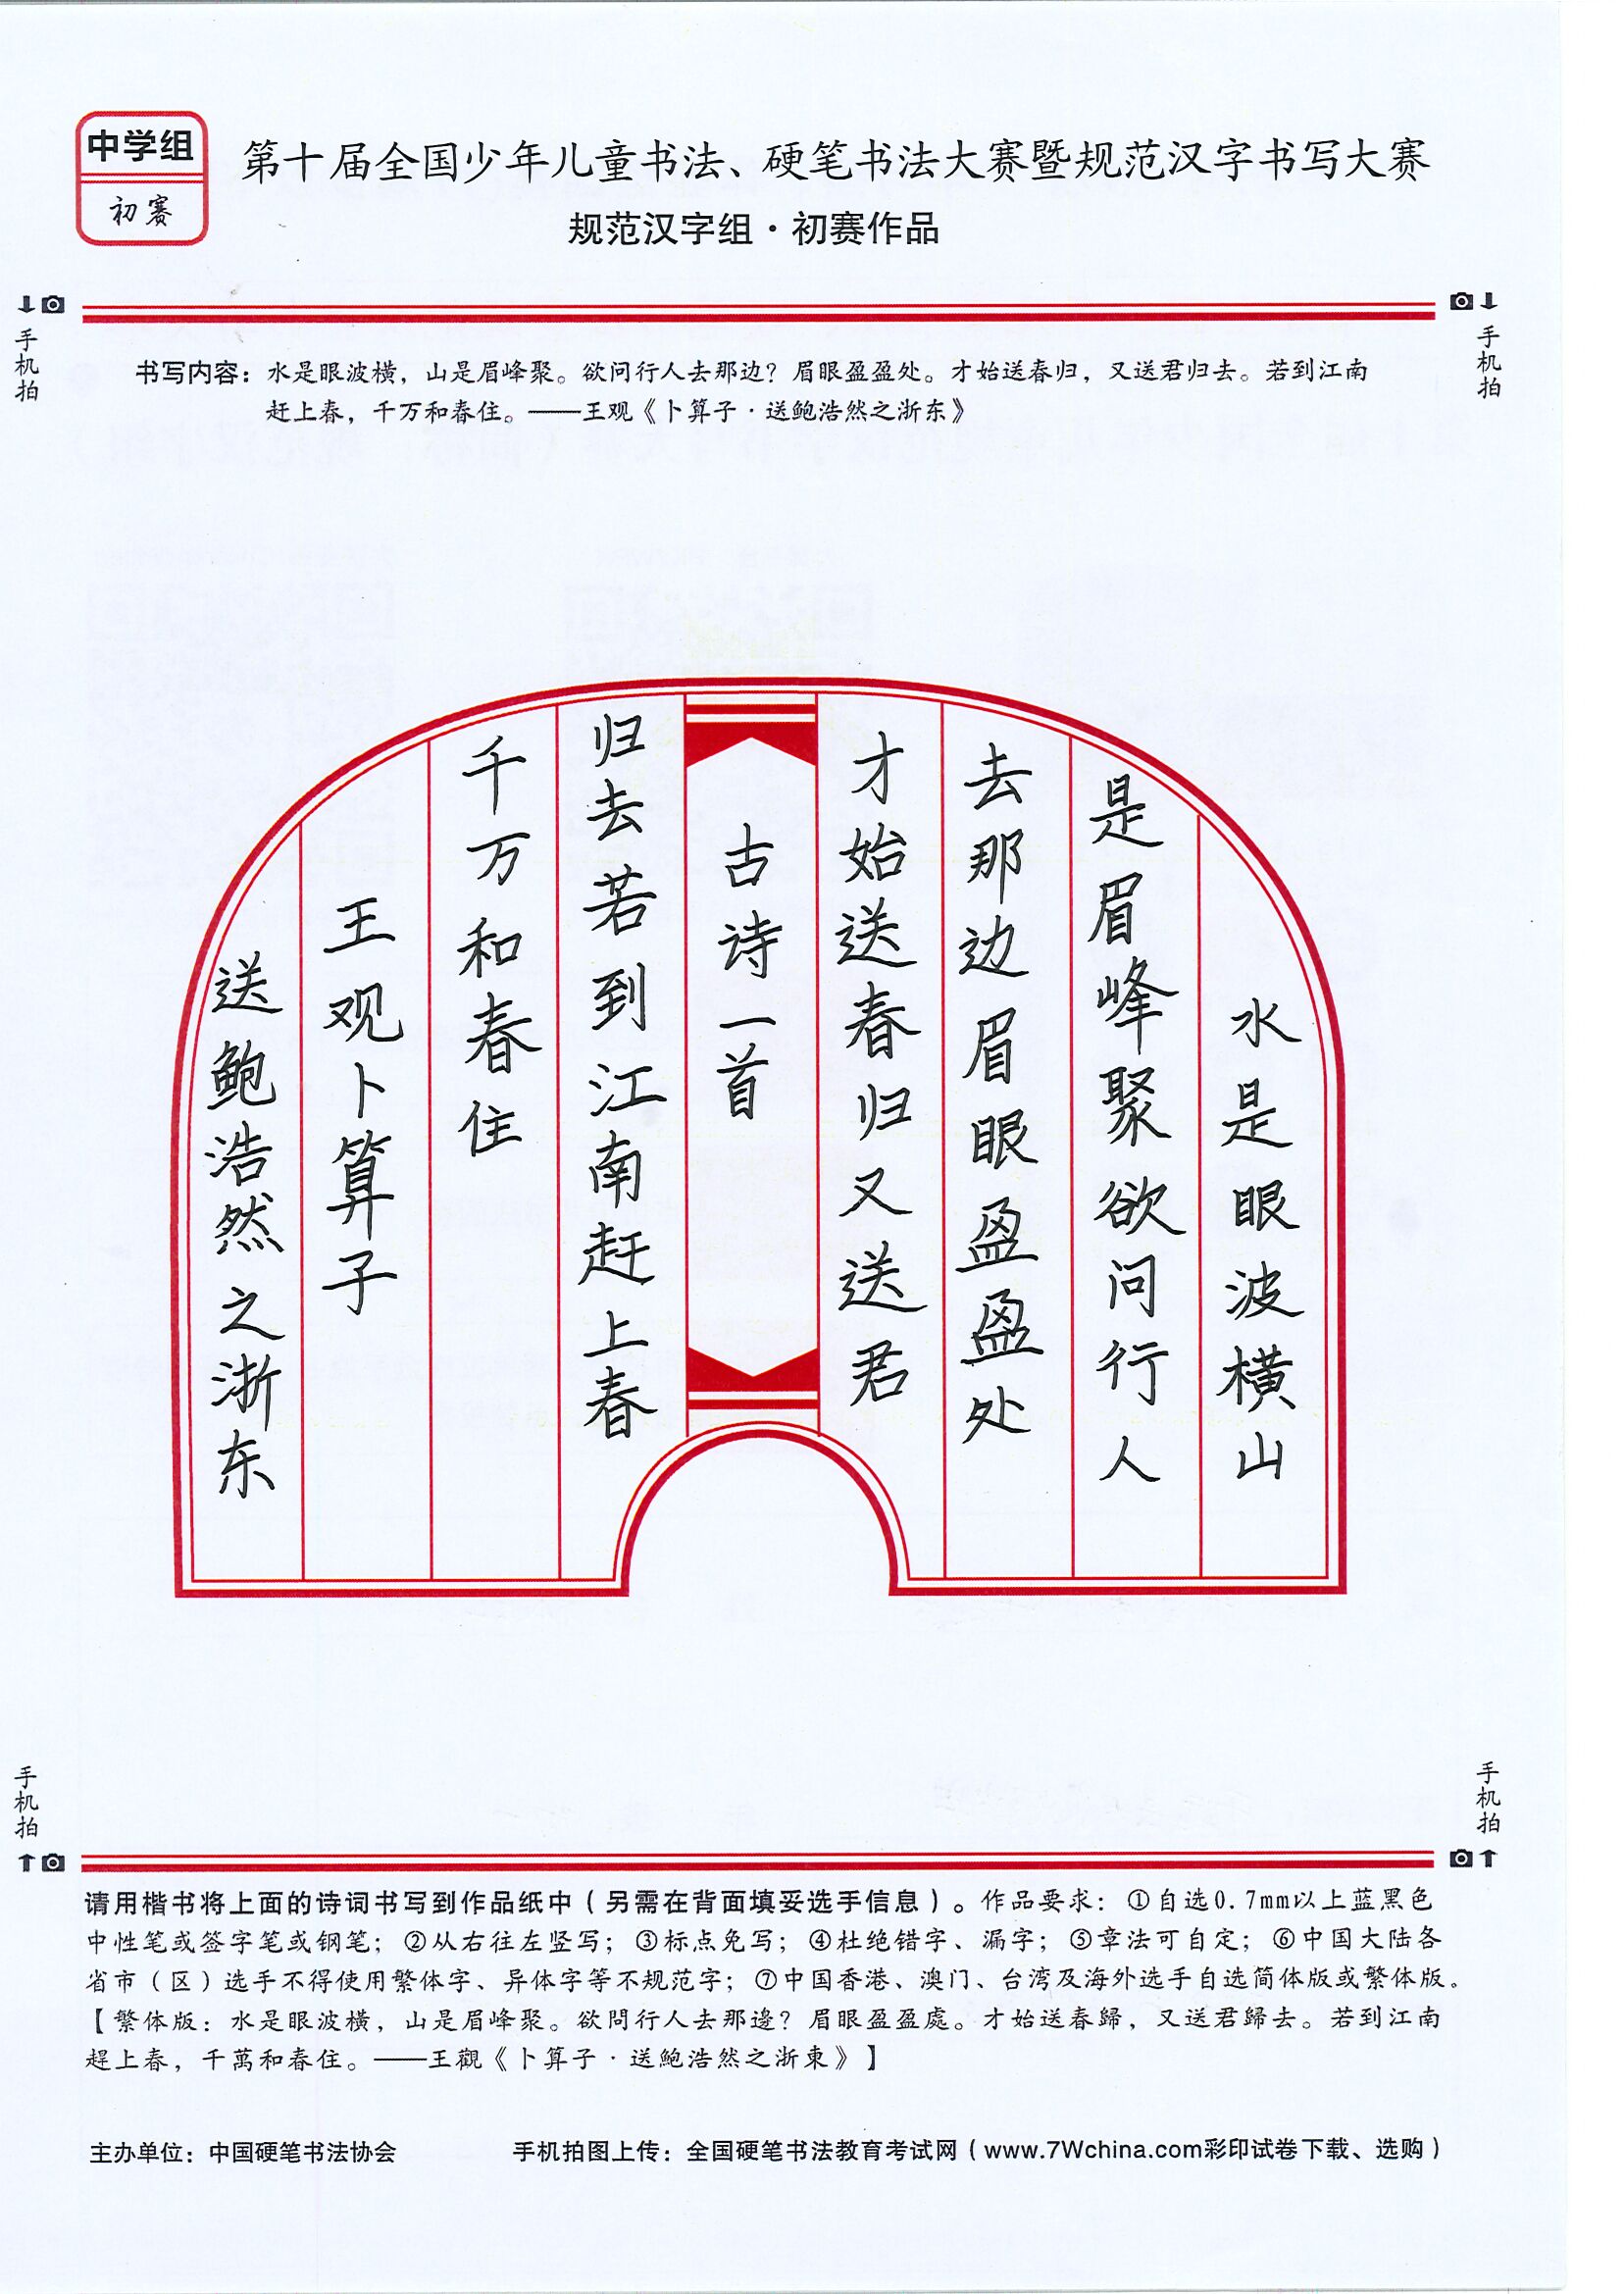 中学组
初赛
第十届全国少年儿童书法、硬笔书法大赛暨规范汉字书写大赛
规范汉字组·初赛作品
手机拍
手机拍
书写内容：水是眼波横，山是眉峰聚。欲问行人去那边？眉眼盈盈处。才始送春归，又送君归去。若到江南
赶上春，千万和春住。——王观《卜算子·送鲍浩然之浙东》
水是眼波横山
是眉峰聚欲问行人
去那边眉眼盈盈处
才始送春归又送君
古诗一首
归去若到江南赶上春
千万和春住
王观卜算子
送鲍浩然之浙东
手机拍
手机拍
请用楷书将上面的诗词书写到作品纸中（另需在背面填妥选手信息）。作品要求：①自选0.7mm以上蓝黑色
中性笔或签字笔或钢笔；②从右往左竖写；③标点免写；④杜绝错字、漏字；⑤章法可自定；⑥中国大陆各
省市（区）选手不得使用繁体字、异体字等不规范字；⑦中国香港、澳门、台湾及海外选手自选简体版或繁体版。
【繁体版：水是眼波橫，山是眉峰聚。欲問行人去那邊？眉眼盈盈處。才始送春歸，又送君歸去。若到江南
趕上春，千萬和春住。——王觀《卜算子·送鮑浩然之浙東》】
主办单位：中国硬笔书法协会
手机拍图上传：全国硬笔书法教育考试网（www.7Wchina.com彩印试卷下载、选购）